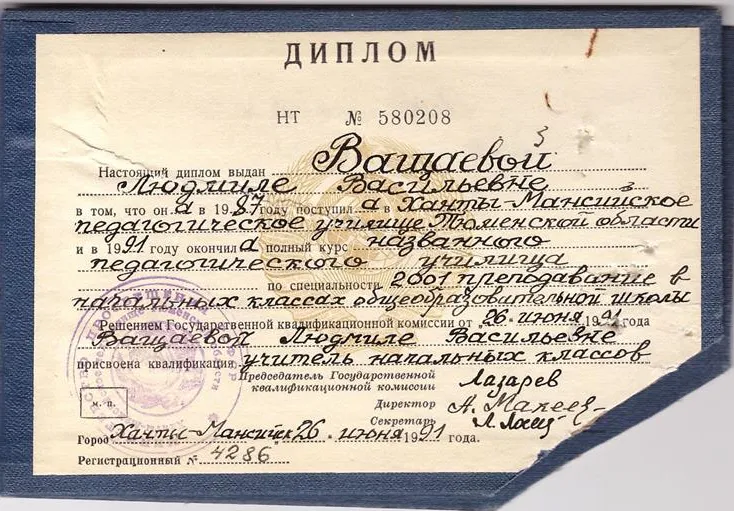 ДИПЛОМ
НТ № 580208
Настоящий диплом выдан Ващаевой
Людмиле Васильевне
в том, что он а в 1987 году поступил а в Ханты-Мансийское
педагогическое училище Тюменской области
и в 1991 году окончил а полный курс названного
педагогического училища
по специальности 2001 преподавание в
начальных классах общеобразовательной школы
Решением Государственной квалификационной комиссии от "26" июня 1991 года
Ващаевой Людмиле Васильевне
присвоена квалификация учитель начальных классов
Председатель Государственной
квалификационной комиссии Лазарев
Директор
Секретарь
м. п.
Город Ханты-Мансийск "26" июня 1991 года.
Регистрационный № 4286